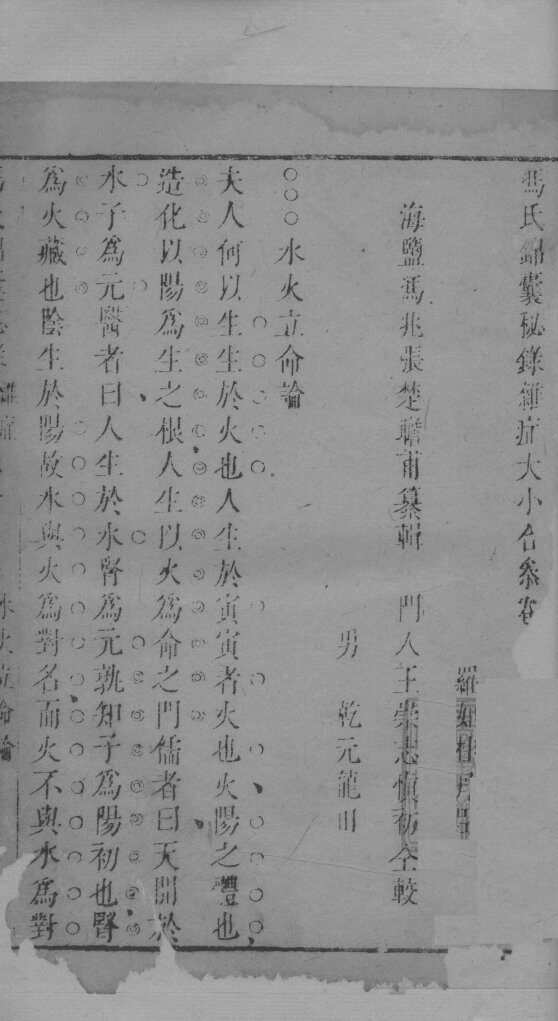 馮氏錦囊秘錄雜症大小合叅卷
羅如桂丹臣
海鹽馮兆張楚瞻甫纂輯 門人王崇志慎初仝較
男 乾元龍田
水火立命論
夫人何以生生於火也人生於寅寅者火也火陽之體也
造化以陽為生之根人生以火為命之門儒者曰天開於
水子為元醫者曰人生於水腎為元孰知子為陽初也腎
為火藏也陰生於陽故水與火為對名而火不與水為對
水火立命論